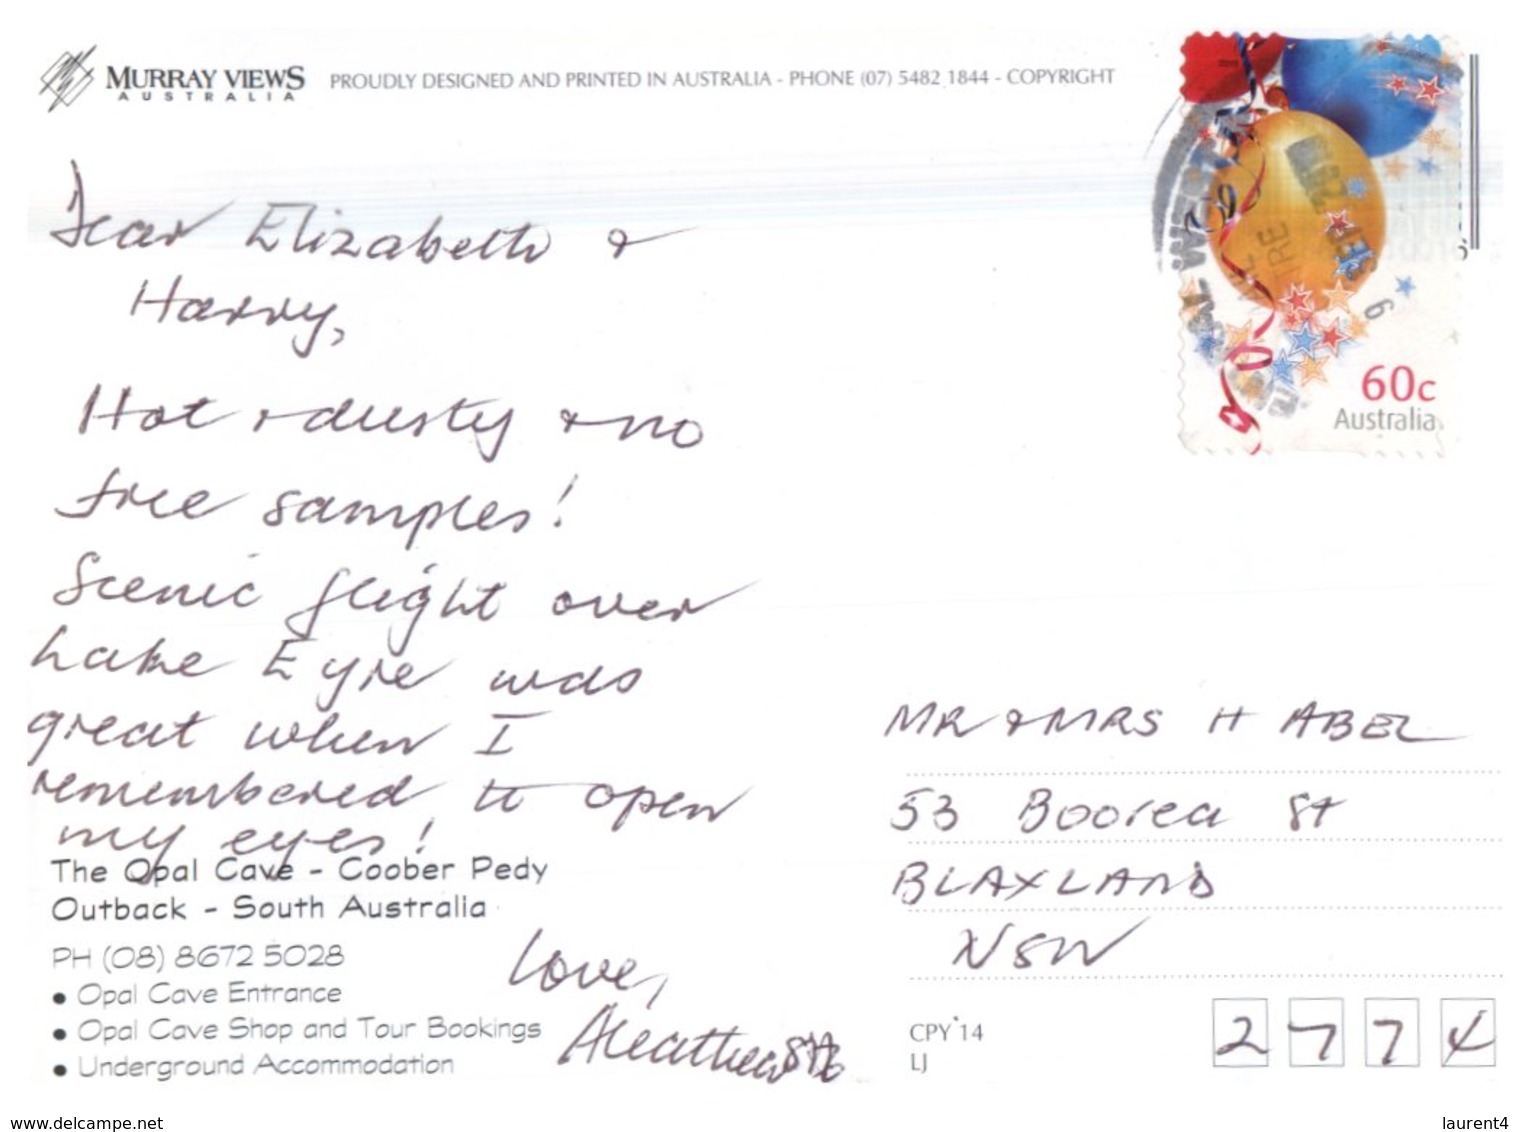 MURRAY VIEWS
AUSTRALIA
PROUDLY DESIGNED AND PRINTED IN AUSTRALIA - PHONE (07) 5482 1844 - COPYRIGHT
60c
Australia
Dear Elizabeth &
Harry,
Hot & dusty & no
free samples!
Scenic flight over
Lake Eyre was
great when I
remembered to open
my eyes!
The Opal Cave - Coober Pedy
Outback - South Australia
PH (08) 8672 5028
• Opal Cave Entrance
• Opal Cave Shop and Tour Bookings
• Underground Accommodation
Love,
Heather
MR & MRS H ABEL
53 Boorea St
BLAXLAND
NSW
2774
CPY'14
LJ
delcampe.net
laurent4